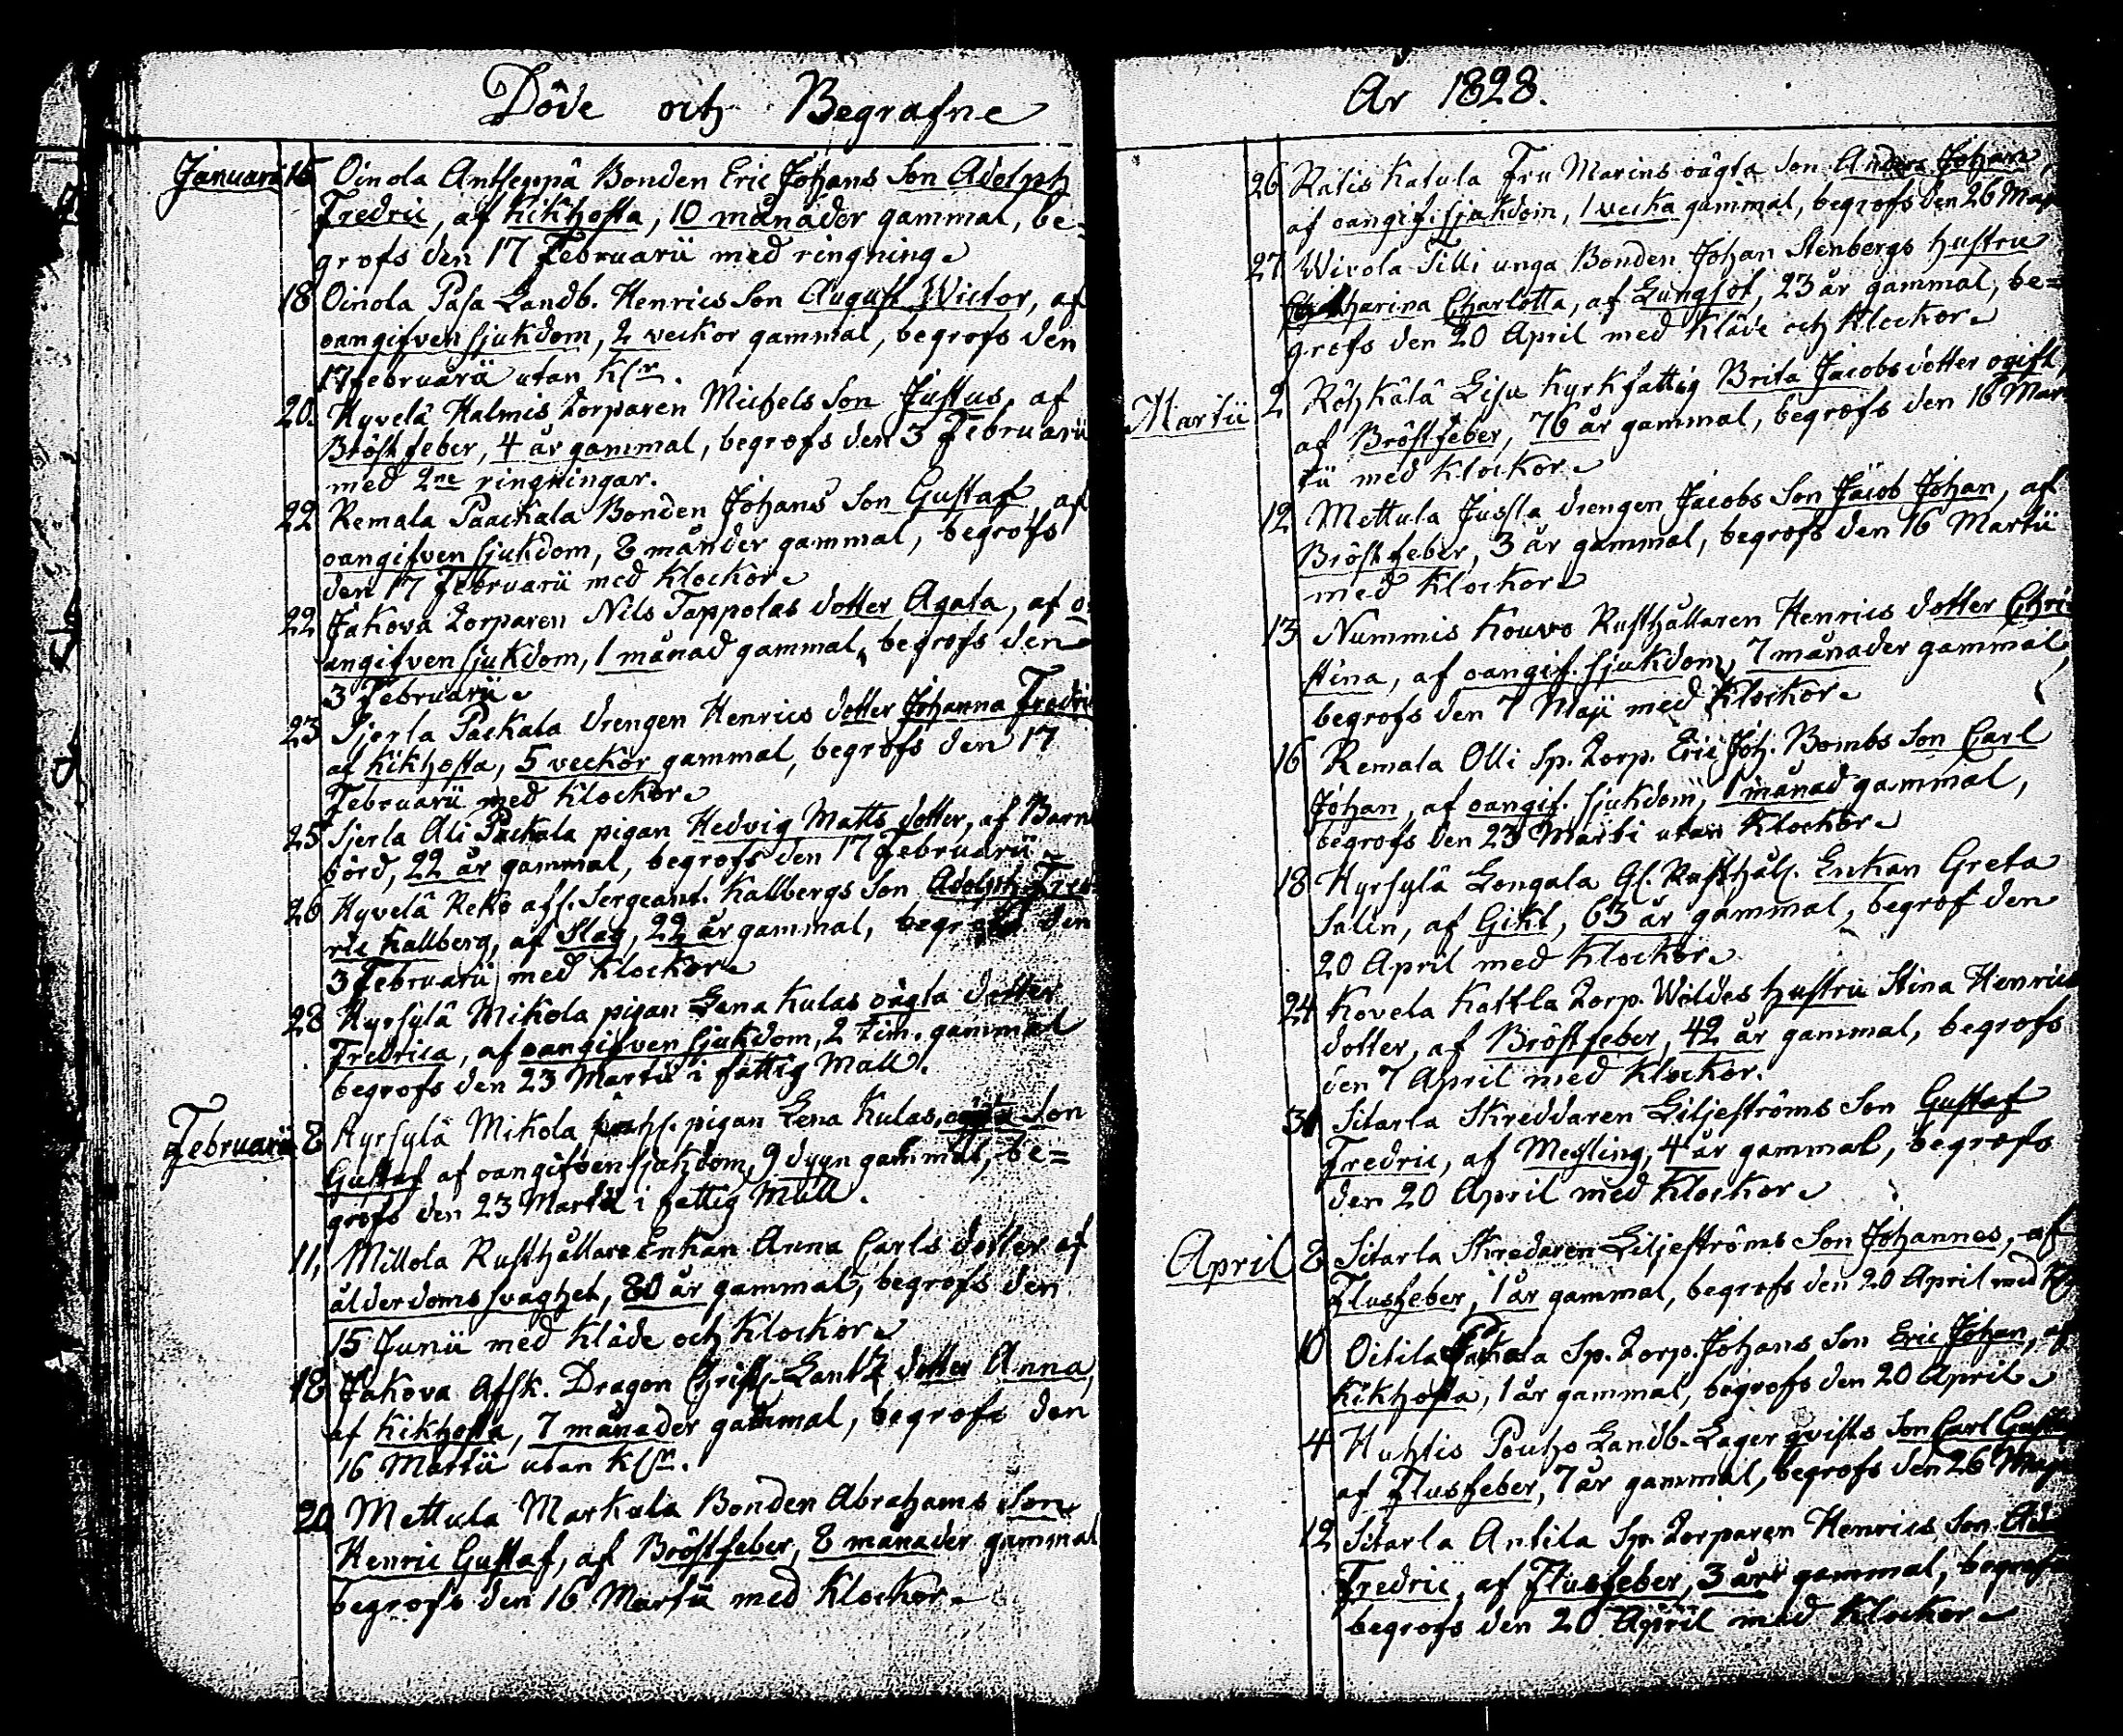 Döde och Begrafne
Januarii 15 Oinola Antseppä Bonden Eric Johans Son Adolph
Fredric, af Kikhosta, 10 månader gammal, be=
grofs den 17 Februarii med ringning
18 Oinola Pasa Landb. Henrics Son August Victor, af
oangifven sjukdom, 2 veckor gammal, begrofs den
17 Februarii utan Klr.
20. Hyvelä Halmis Torparen Michels Son Justus, af
Bröstfeber, 4 år gammal, begrofs den 3 Februarii
med 2ne ringningar.
22 Remala Paackala Bonden Johans Son Gustaf, af
oangifven sjukdom, 8 månder gammal, begrofs
den 17 Februarii med Klockor
22 Jakova Torparen Nils Tappolas dotter Agata, af o
angifven sjukdom, 1 månad gammal, begrofs den
3 Februarii
23 Sjerla Packala drengen Henrics dotter Johanna Fredri
af Kikhosta, 5 veckor gammal, begrofs den 17
Februarii med Klockor
25 Sjerla Ali Packala pigan Hedvig Matts dotter, af Barn
börd, 22 år gammal, begrofs den 17 Februarii
26 Hyvelä Reko afs. Sergeant. Kallbergs Son Adolph Fred
ric Kallberg, af Slag, 22 år gammal, begrofs den
3 Februarii med Klockor
28 Hyrsylä Mikola pigan Lena Kulas oägta dotter
Fredrica, af oangifven sjukdom, 2 tim. gammal
begrofs den 23 Martii i fattig Mull.
Februarii 8 Hyrsylä Mikola pigan Lena Kulas, oägta Son
Gustaf af oangifven sjukdom, 9 dygn gammal, be=
grofs den 23 Martii i fattig Mull.
11, Millola Rusthållare Enkan Anna Carls dotter af
ålderdoms svaghet, 80 år gammal, begrofs den
15 Junii med Kläde och Klockor
18 Jakova Afsk. Dragon Christ. Lantz dotter Anna,
af Kikhosta, 7 månader gammal, begrofs den
16 Martii utan Klr.
20 Mettula Markula Bonden Abrahams Son
Henric Gustaf, af Bröstfeber, 8 månader gammal
begrofs den 16 Martii med Klockor
År 1828.
26 Ratis Katula Fru Marins oägta Son Anders Johan,
af oangif. sjukdom, 1 vecka gammal, begrofs den 26 Maji
27 Wirola Tilli unga Bonden Johan Stenbergs hustru
Catharina Charlotta, af Lungsot, 23 år gammal, be=
grofs den 20 April med Kläde och Klockor
Martii 2 Röhkälä Lisu Kyrkfattig Brita Jacobs dotter ogift,
af Bröstfeber, 76 år gammal, begrofs den 16 Mar
tii med Klockor
12 Mettula Jussla drengen Jacobs Son Jacob Johan, af
Bröstfeber, 3 år gammal, begrofs den 16 Martii
med Klockor
13 Nummis Kouvo Rusthållaren Henrics dotter Chri
stina, af oangif. sjukdom, 7 månader gammal,
begrofs den 7 Maji med Klockor
16 Remala Olli Sp. Torp. Eric Joh. Bombs Son Carl
Johan, af oangif. sjukdom, 1 månad gammal,
begrofs den 23 Marti utan Klockor
18 Hyrsylä Longala Gl. Rusthåls. Enkan Greta
Salin, af Gikt, 63 år gammal, begrof den
20 April med Klockor
24 Kovela Kattla Torp. Wildes hustru Stina Henrics
dotter, af Bröstfeber, 42 år gammal, begrofs
den 7 April med Klockor.
31 Sitarla Skreddaren Liljeströms Son Gustaf
Fredric, af Messling, 4 år gammal, begrofs
den 20 April med Klockor
April 8 Sitarla Skredaren Liljeströms Son Johannes, af
Flusfeber, 1 år gammal, begrofs den 20 April med
10 Oitila Sp. Torp. Johans Son Eric Johan, af
Kikhosta, 1 år gammal, begrofs den 20 April
4 Huhtis Pouhs Landb. Lagerqvists Son Carl Gust
af Flusfeber, 7 år gammal, begrofs den 26 Maji
12 Sitarla Antila Sp. Torparen Henrics Son
Fredric, af Flusfeber, 3 år gammal, begrofs
begrofs den 20 April med Klockor